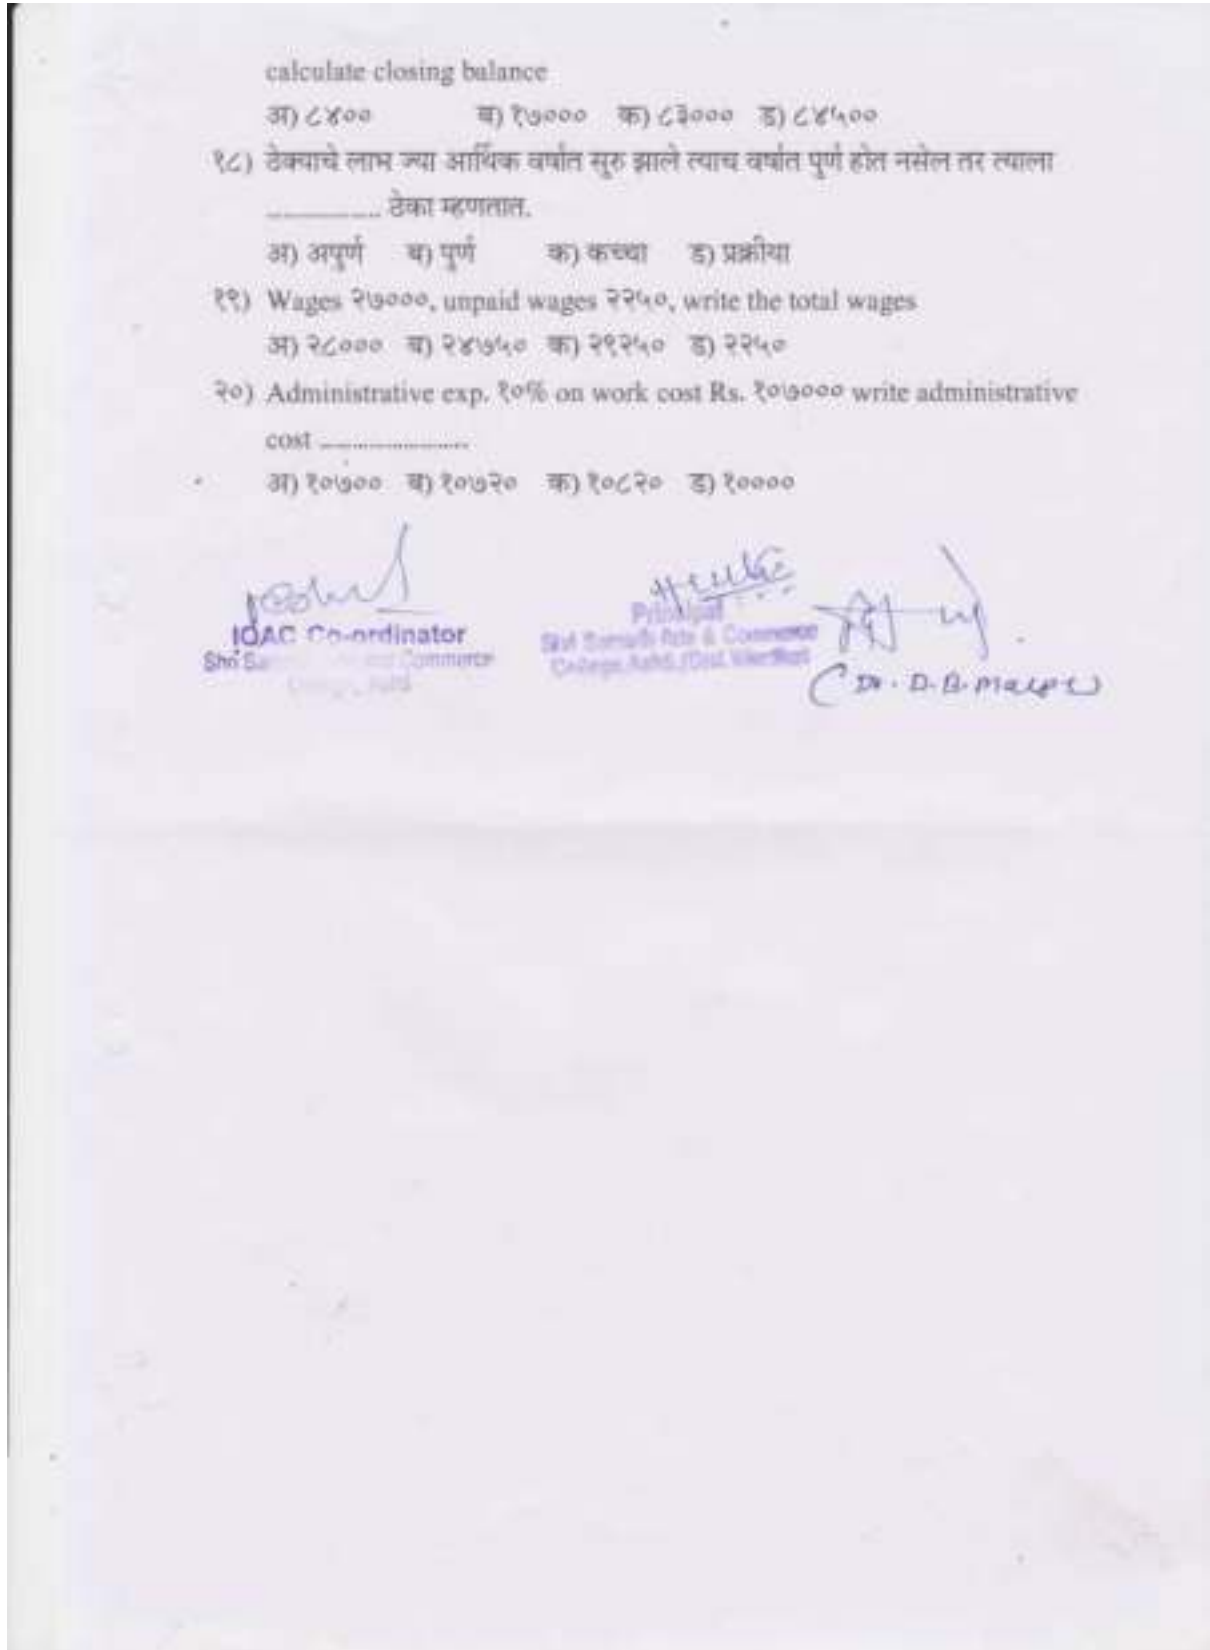 calculate closing balance
अ) ८४०० ब) १७००० क) ८३००० ड) ८४५००
१८) ठेक्याचे लाभ ज्या आर्थिक वर्षात सुरु झाले त्याच वर्षात पुर्ण होत नसेल तर त्याला
.................. ठेका म्हणतात.
अ) अपुर्ण ब) पुर्ण क) कच्चा ड) प्रक्रीया
१९) Wages २७०००, unpaid wages २२५०, write the total wages
अ) २८००० ब) २४७५० क) २९२५० ड) २२५०
२०) Administrative exp. १०% on work cost Rs. १०७००० write administrative
cost ........................
अ) १०७०० ब) १०७२० क) १०८२० ड) १००००
IQAC Co-ordinator
Commerce
Principal
Arts & Commerce
College,
(Dr. D.B.